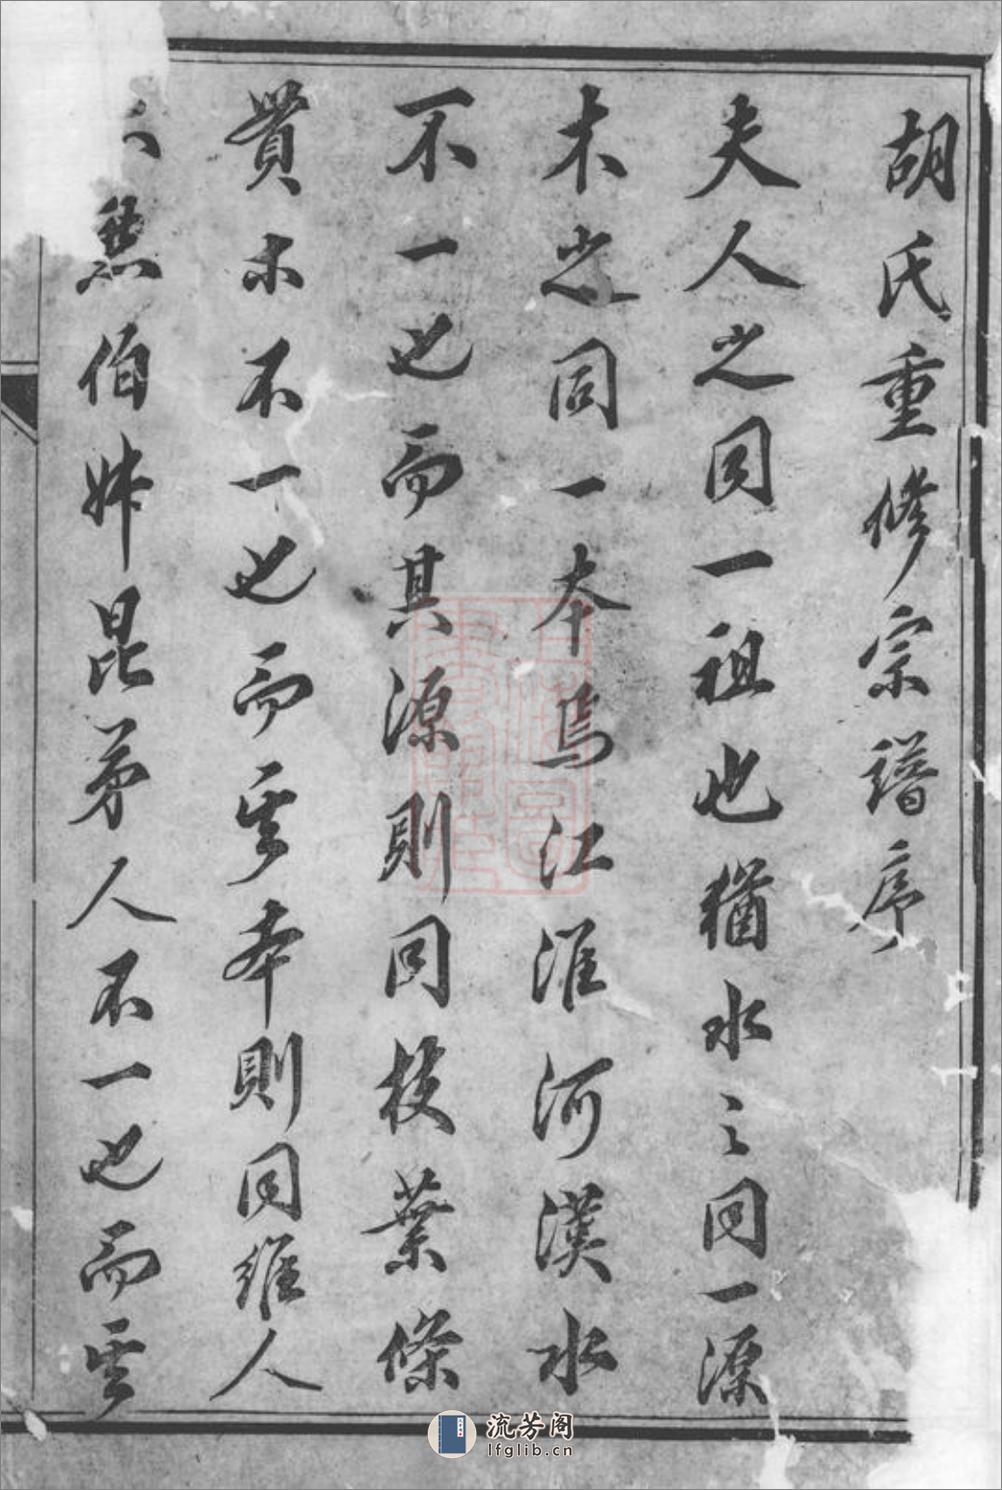 胡氏重修宗譜序
夫人之同一祖也猶水之同一源
木之同一本焉江淮河漢水
不一也而其源則同枝葉條
蕡木不一也而其本則同維人
亦然伯姊昆弟人不一也而其
流芳阁
lfglib.cn